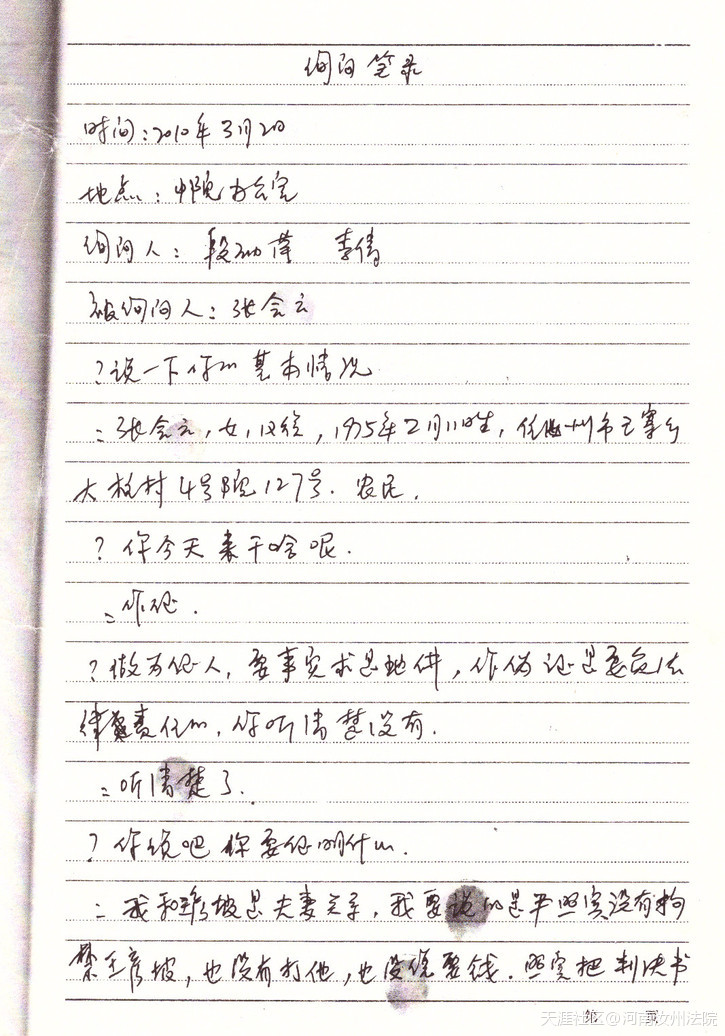 询问笔录
时间:2010年3月2日
地点:中院办公室
询问人: 段 李倩
被询问人:张会云
?说一下你的基本情况
:张会云,女,汉族,1975年2月11日生,住汝州市王寨乡
大 村4号院127号.农民.
?你今天来干啥呢.
:作证.
?做为证人,要事实求是地讲,作伪证是要负法
律责任的,你听清楚没有.
:听清楚了.
?你说吧你要证明什么.
:我和彦坡是夫妻关系,我要说的是 照实没有拘
禁王彦坡,也没有打他,也没说要钱.照实把判决书
第 页
天涯社区@河南汝州法院